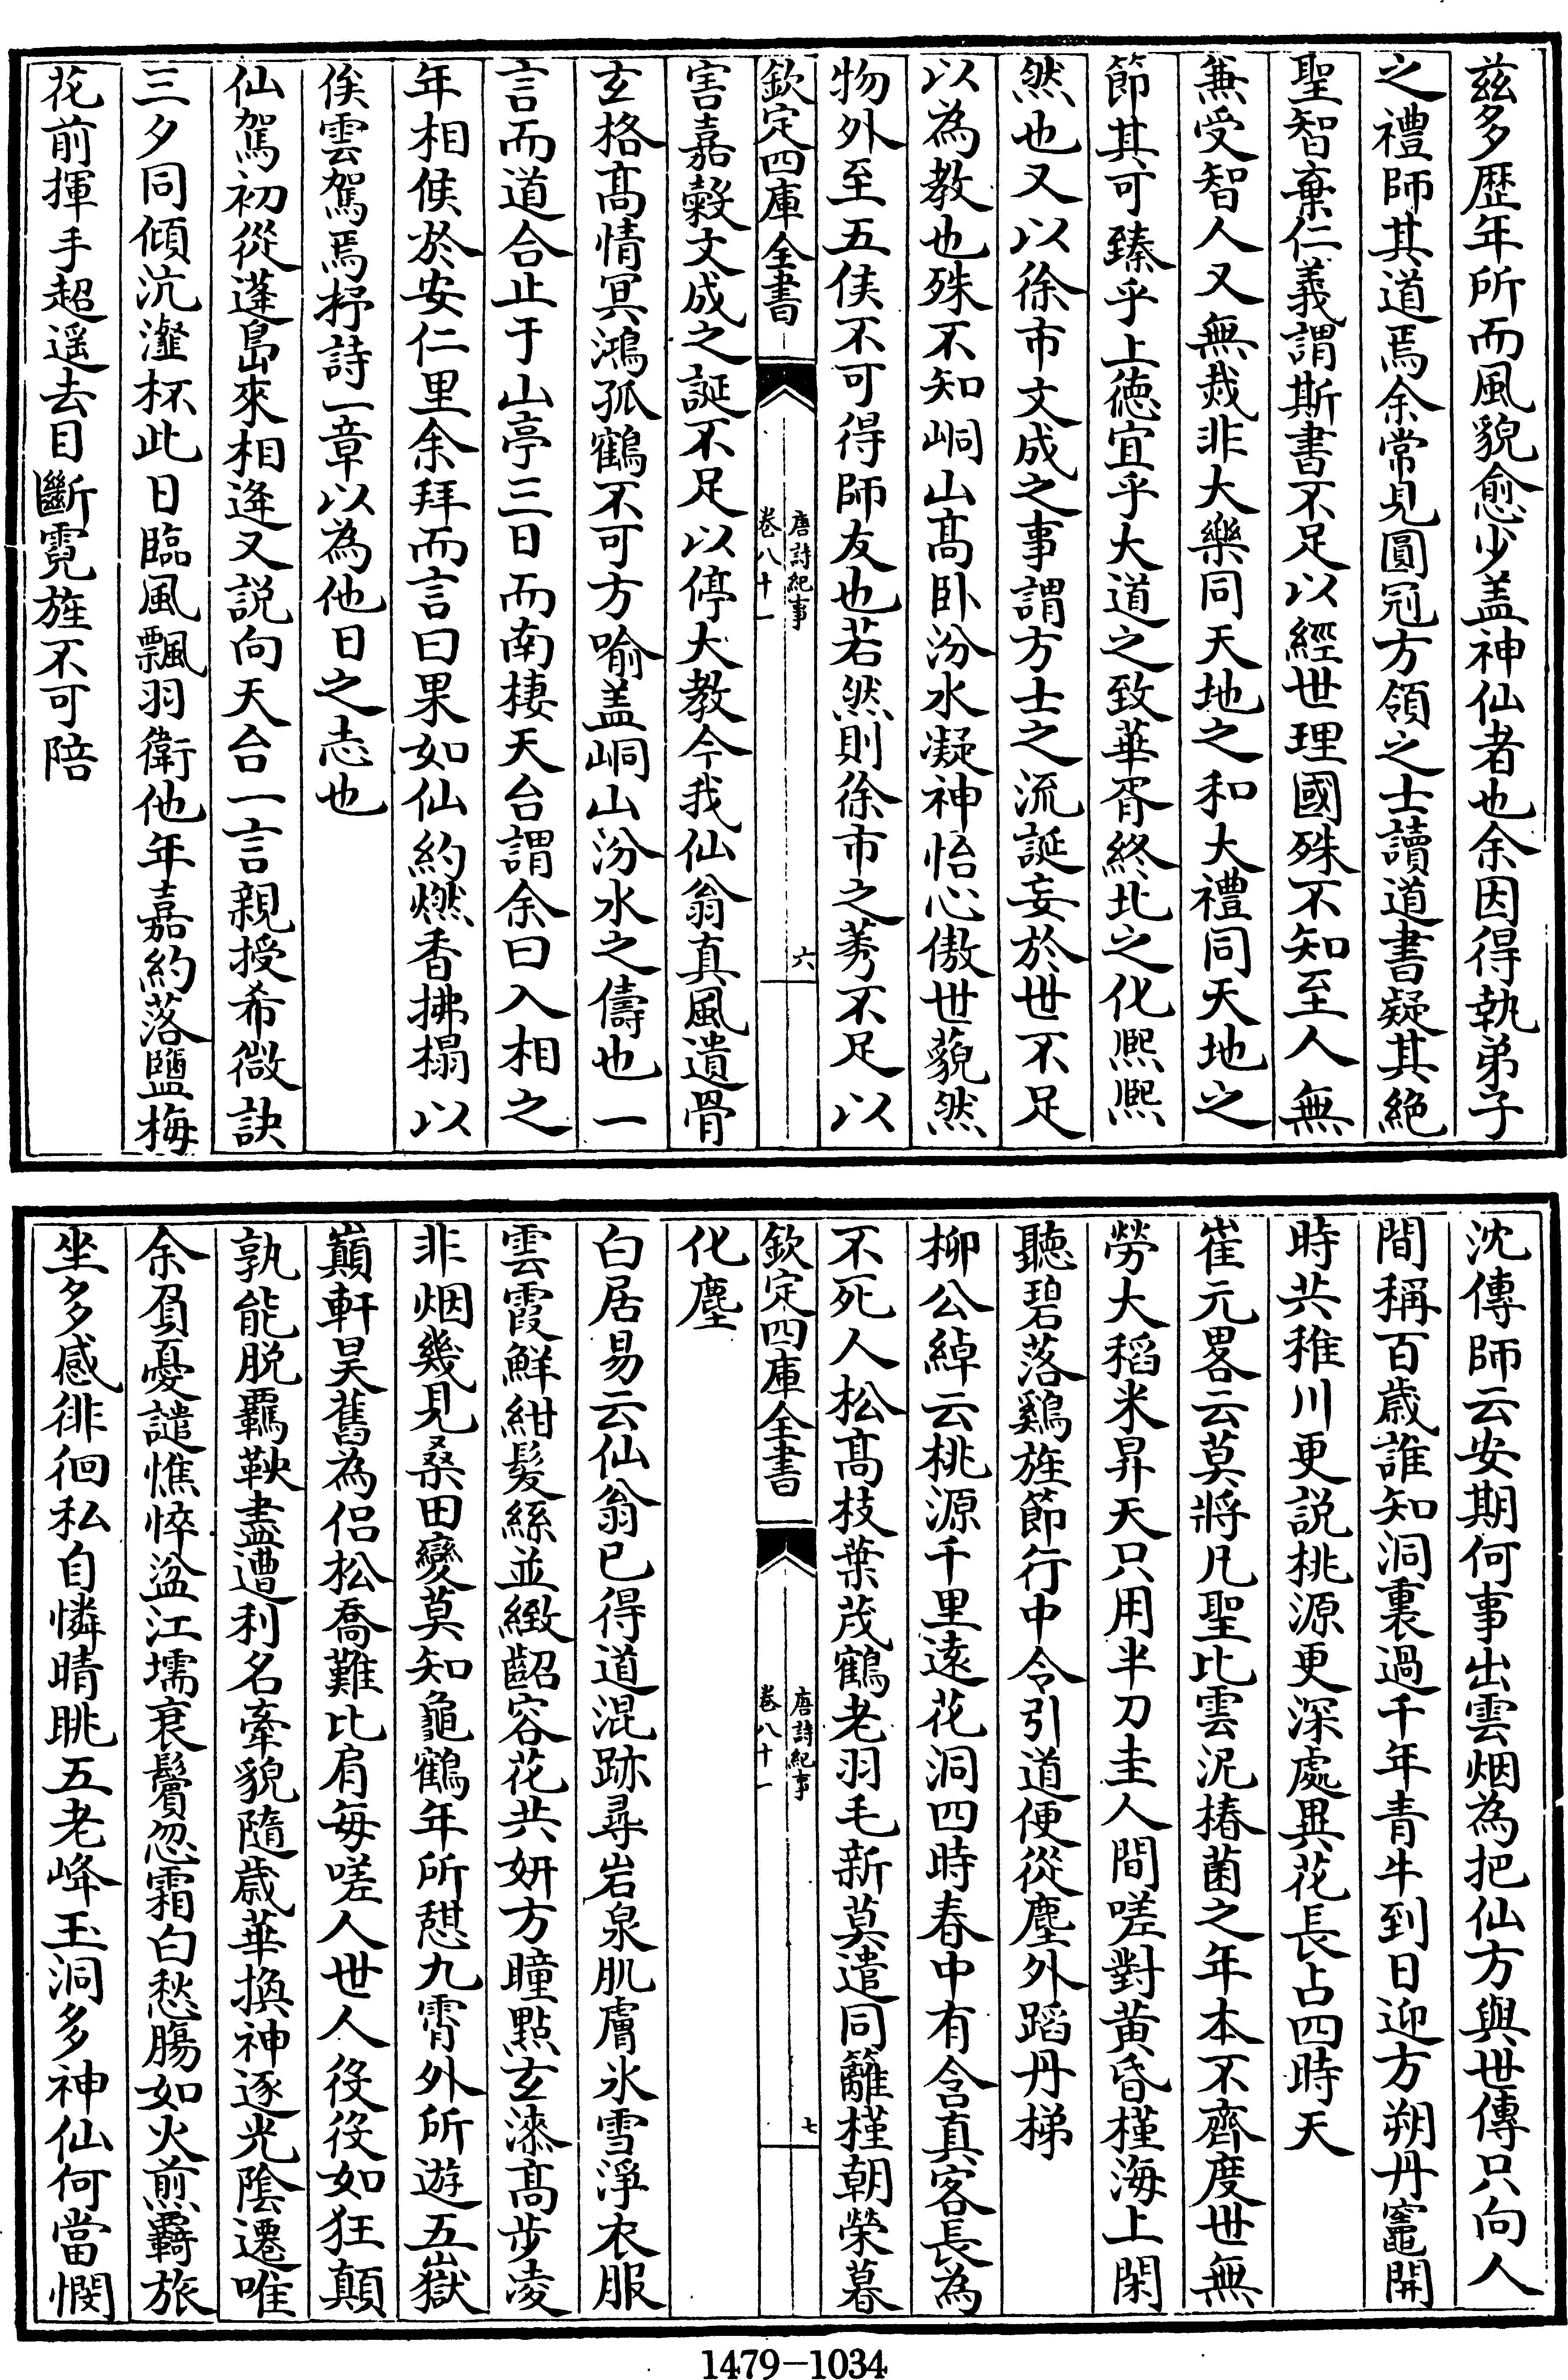 茲多歴年所而風貌愈少盖神仙者也余因得執弟子
之禮師其道焉余常見圓冠方領之士讀道書疑其絶
聖智棄仁義謂斯書不足以經世理國殊不知至人無
兼受智人又無𢦏非大樂同天地之和大禮同天地之
節其可臻乎上徳宜乎大道之致華胥終北之化熈熈
然也又以徐市文成之事謂方士之流誕妄於世不足
以為教也殊不知峒山髙卧汾水凝神怡心傲世藐然
物外至五侯不可得師友也若然則徐市之莠不足以
欽定四庫全書
唐詩紀事
卷八十一
六
害嘉榖文成之誕不足以停大教今我仙翁真風遺骨
玄格髙情冥鴻孤鶴不可方喻盖峒山汾水之儔也一
言而道合止于山亭三日而南棲天台謂余曰入相之
年相候於安仁里余拜而言曰果如仙約燃香拂榻以
俟雲駕焉抒詩一章以為他日之志也
仙駕初從蓬島來相逢又説向天台一言親授希微訣
三夕同傾沆瀣杯此日臨風飄羽衛他年嘉約落鹽梅
花前揮手超遥去目斷霓旌不可陪
沈傳師云安期何事出雲烟為把仙方與世傳只向人
間稱百歳誰知洞裏過千年青牛到日迎方朔丹竈開
時共稚川更説桃源更深處異花長占四時天
崔元畧云莫將凡聖比雲泥椿菌之年本不齊度世無
勞大稻米昇天只用半刀圭人間嗟對黄昏槿海上閑
聽碧落鷄旌節行中令引道便從塵外蹈丹梯
柳公綽云桃源千里逺花洞四時春中有含真客長為
不死人松髙枝葉茂鶴老羽毛新莫遣同籬槿朝榮暮
欽定四庫全書
唐詩紀事
卷八十一
七
化塵
白居易云仙翁已得道混跡尋岩泉肌膚氷雪淨衣服
雲霞鮮紺髮絲並緻齠容花共妍方瞳點玄漆髙步凌
非烟幾見桑田變莫知龜鶴年所憇九霄外所遊五嶽
巔軒昊舊為侣松喬難比肩每嗟人世人役役如狂顛
孰能脱羈鞅盡遭利名牽貌隨歳華換神逐光陰遷唯
余負憂譴憔悴湓江壖衰鬢忽霜白愁腸如火煎羇旅
坐多感徘徊私自憐晴眺五老峰玉洞多神仙何當憫
1479-1034